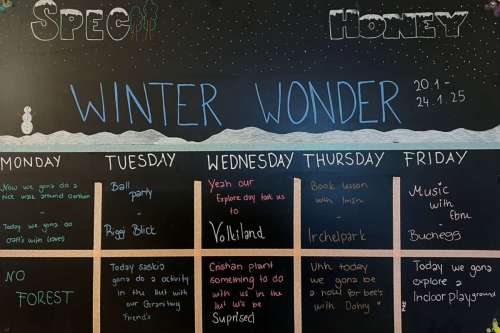 SPEC HONEY
WINTER WONDER
20.1 -
24.1.25
MONDAY TUESDAY WEDNESDAY THURSDAY FRIDAY
Now we gona do a
nice walk around
-
Today we gona do
craft's with
Ball
party
-
Riggi Blick
Yeah our
Explore day took us
to
Volkiland
Book lesson
with
-
Irchelpark
Music
with
-
Buchegg
NO
FOREST
Today saskia
gona do a activity
in the hut with
our Granitny
Friend's
Cristian plant
something to do
with us in the
hut we'll be
Suprised
Uhh today
we gona be
a for bee's
with
Today we gona
explore a
Indoor playground